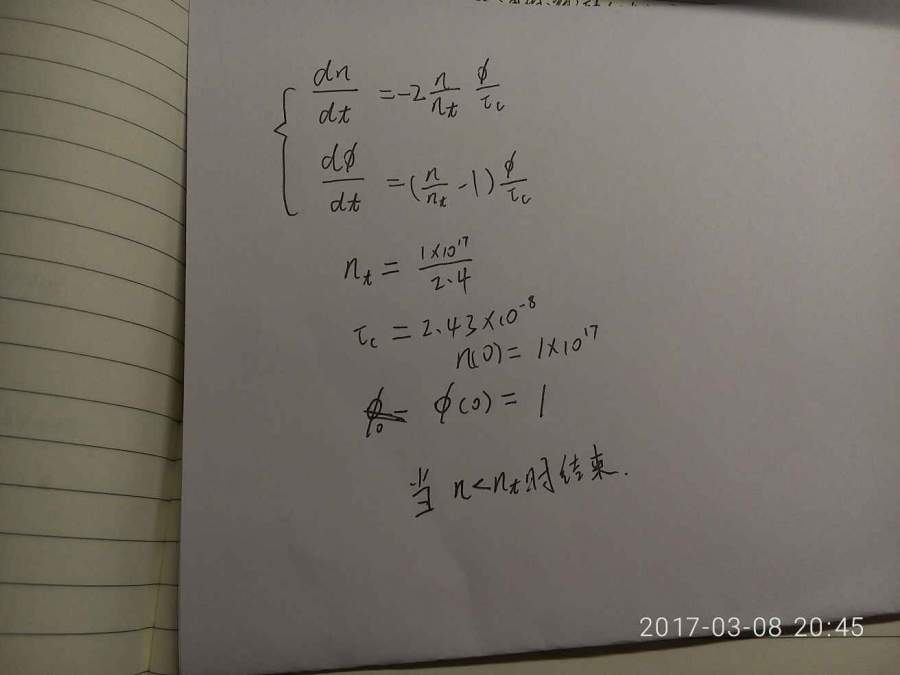 dn/dt = -2 n/n_t ϕ/τ_c
dϕ/dt = (n/n_t - 1) ϕ/τ_c
n_t = 1×10^17/2.4
τ_c = 2.43×10^-8
n(0) = 1×10^17
ϕ(0) = 1
当 n<n_t时结束.
2017-03-08 20:45